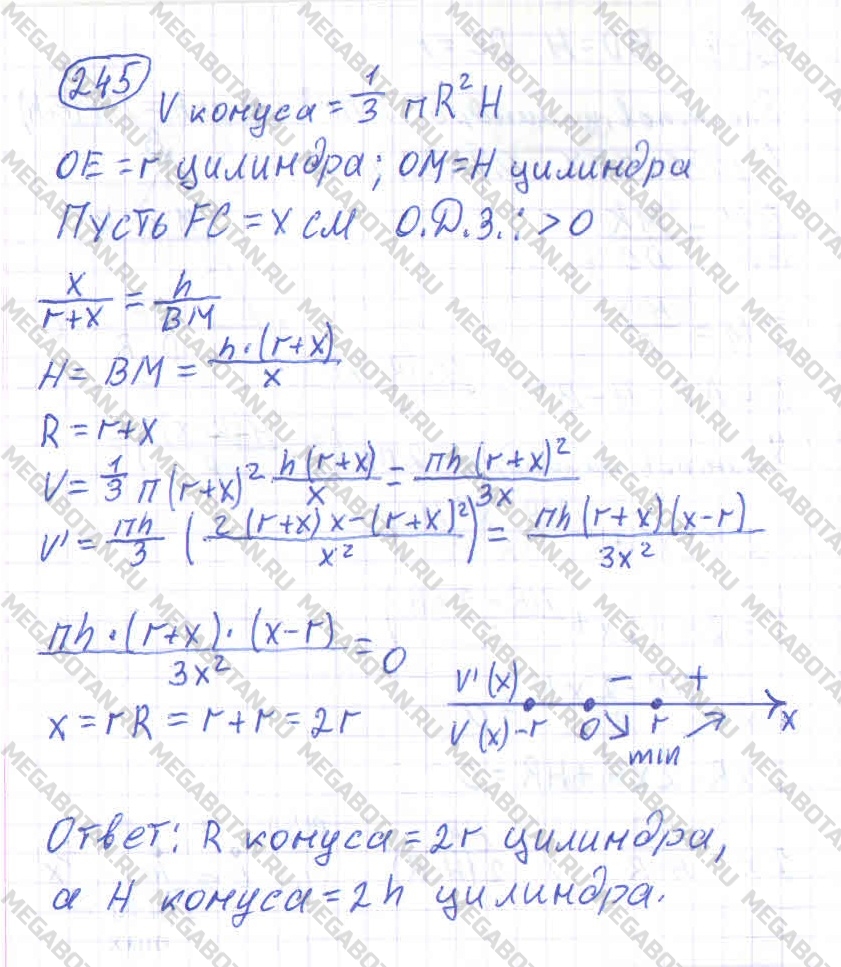 245
V конуса = 1/3 πR²H
OE = r цилиндра; OM = H цилиндра
Пусть FC = x см О.Д.З.: > 0
x/(r+x) = h/BM
H = BM = h·(r+x)/x
R = r+x
V = 1/3 π(r+x)² h(r+x)/x = πh(r+x)²/3x
V' = πh/3 (2(r+x)x-(r+x)²/x²) = πh(r+x)(x-r)/3x²
πh·(r+x)·(x-r)/3x² = 0
x = r R = r+r = 2r
V'(x) − +
V(x) -r 0 ↘ r ↗ x
min
Ответ: R конуса = 2r цилиндра,
а H конуса = 2h цилиндра.
MEGABOTAN.RU